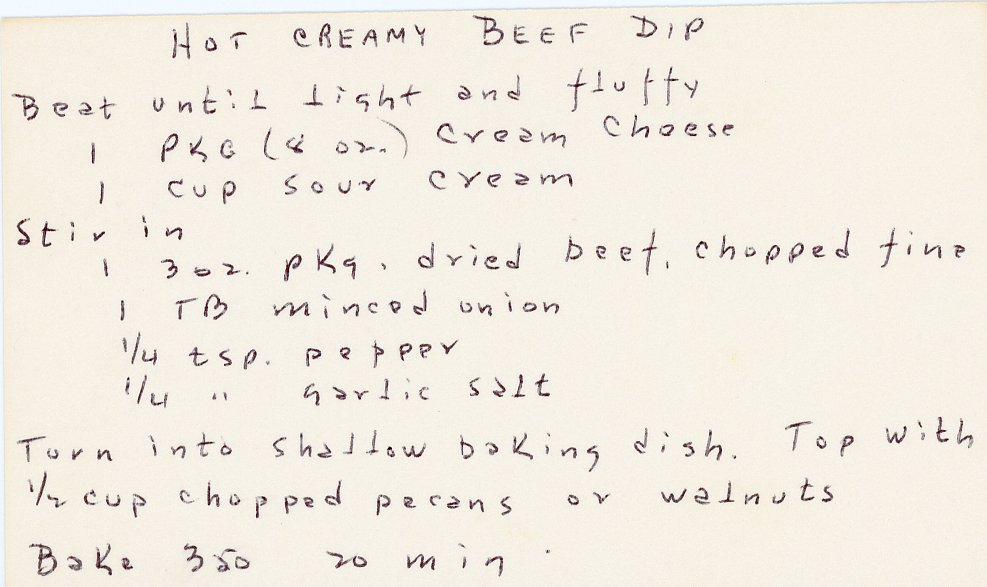 HOT CREAMY BEEF DIP
Beat until light and fluffy
1 PKG (8 oz.) Cream Cheese
1 cup sour cream
Stir in
1 3 oz. pkg. dried beef, chopped fine
1 TB minced onion
1/4 tsp. pepper
1/4 " garlic salt
Turn into shallow baking dish. Top with
1/2 cup chopped pecans or walnuts
Bake 350 20 min.